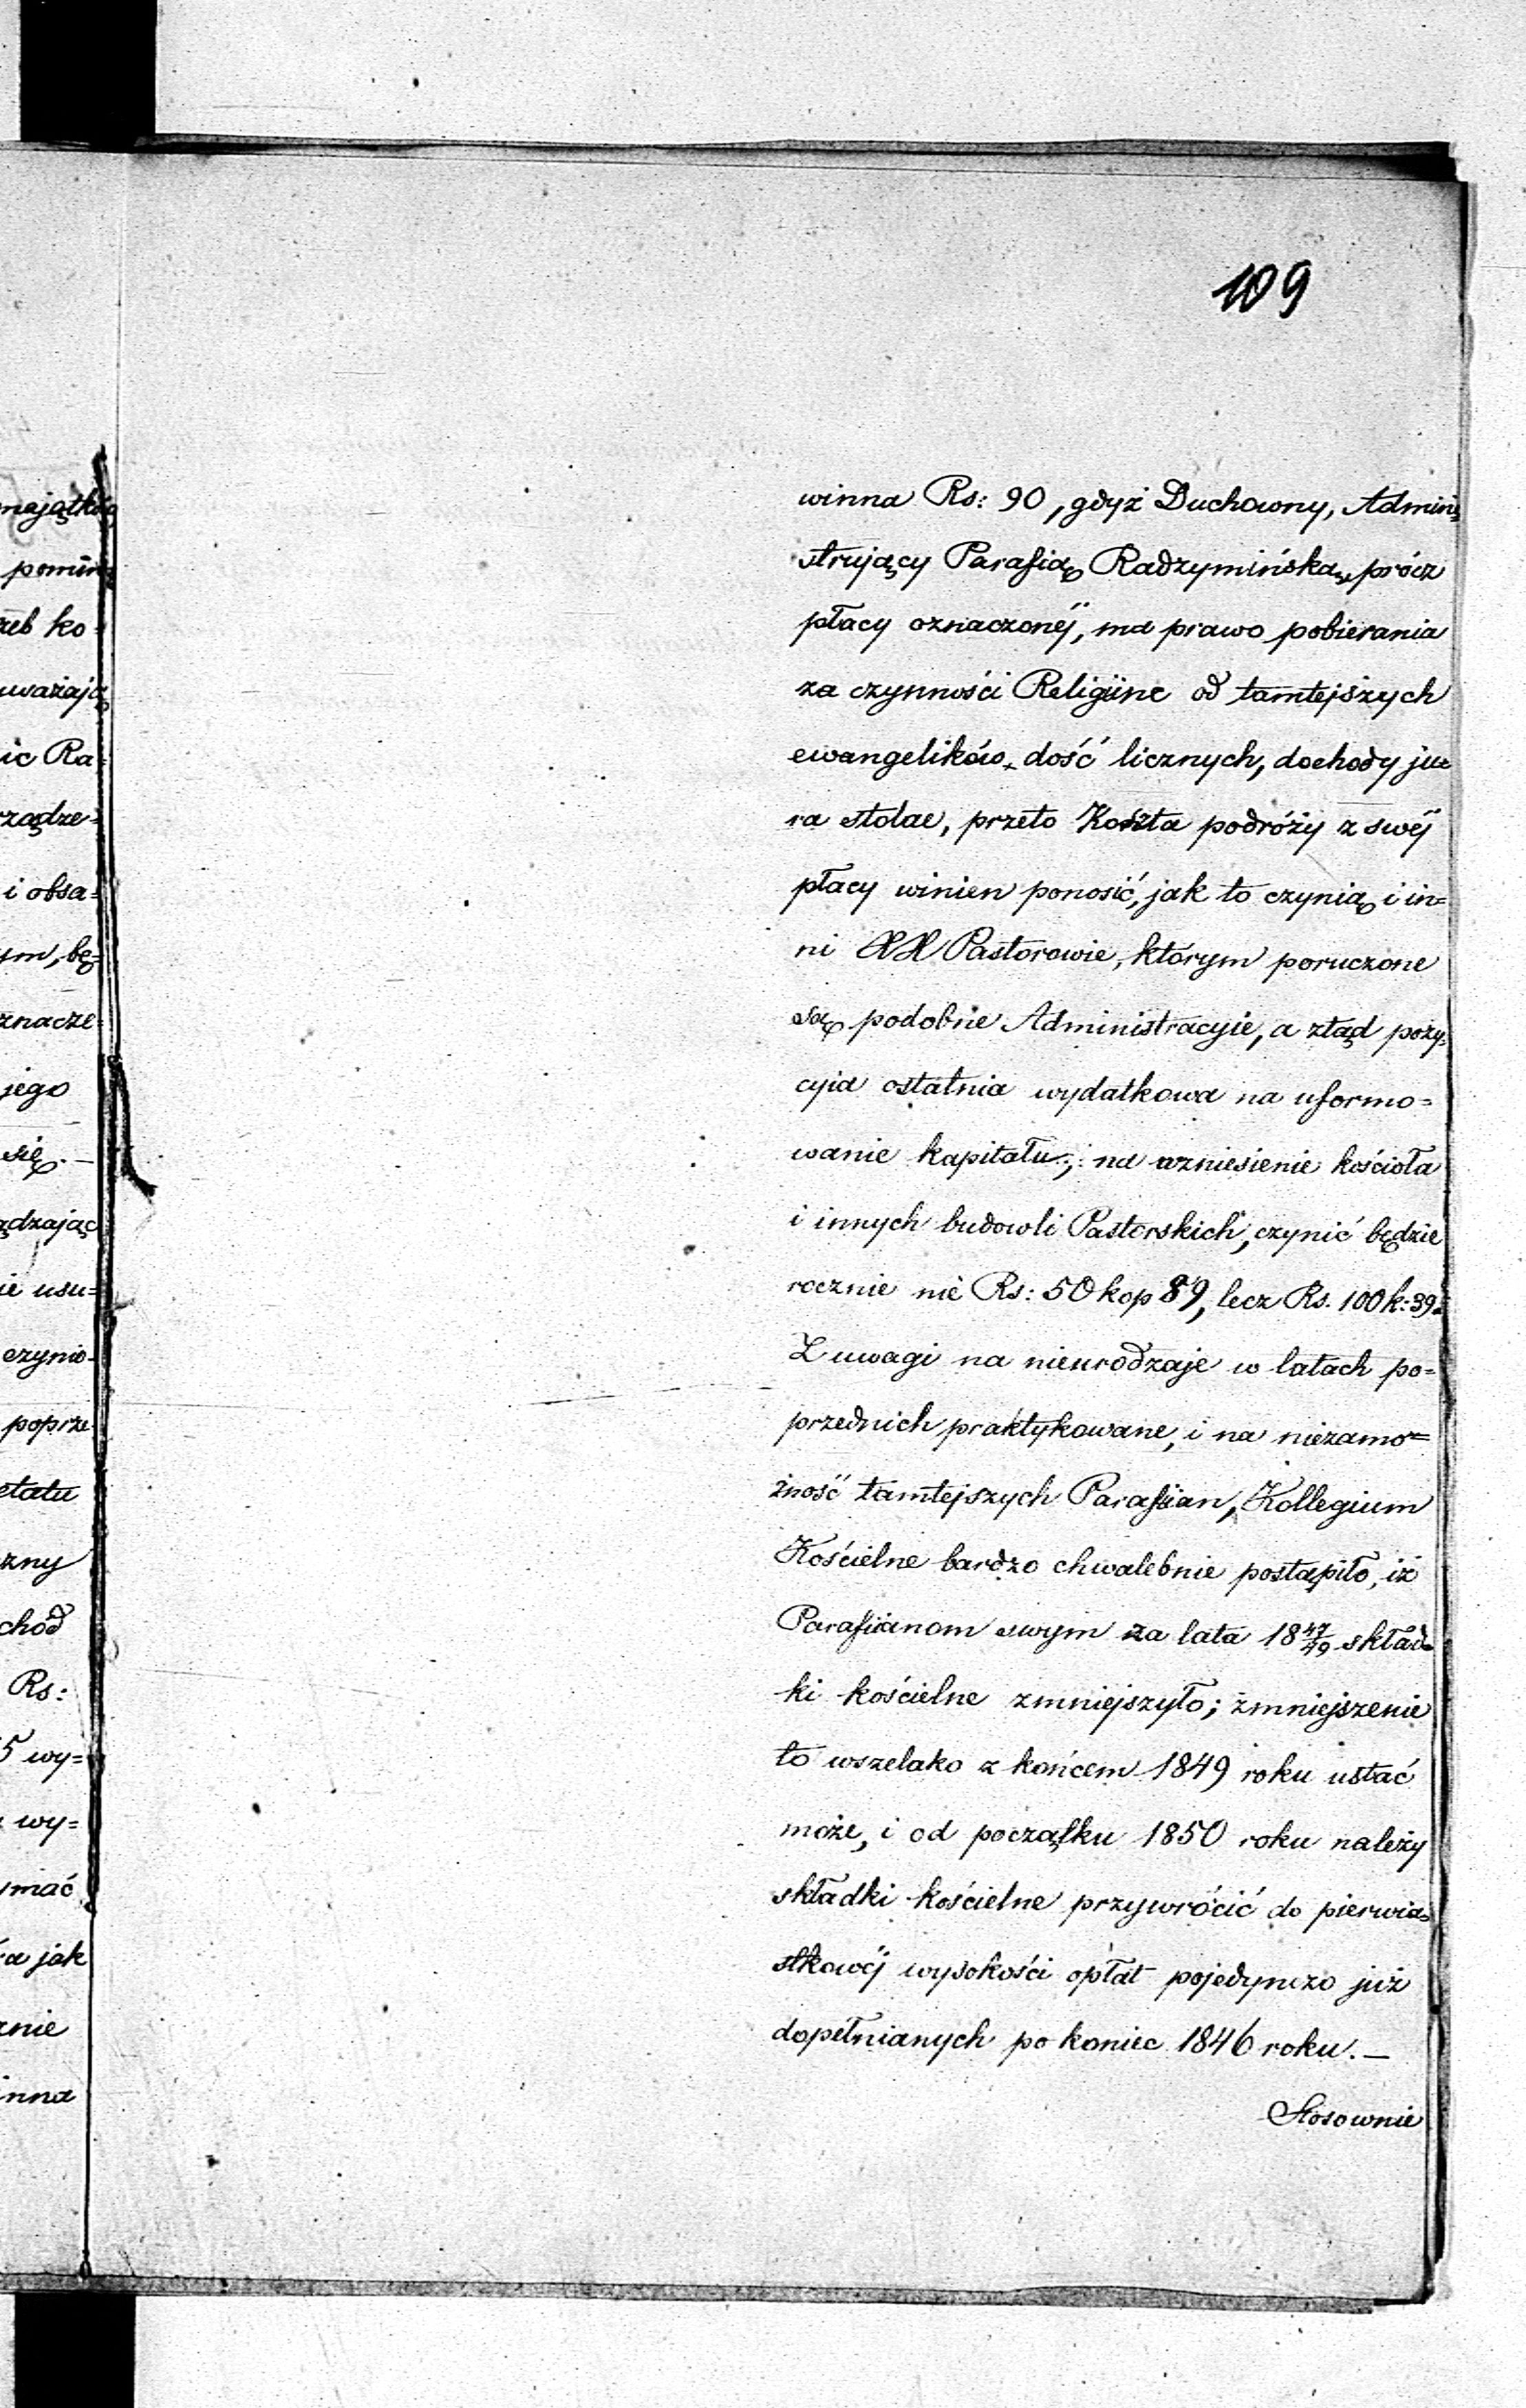 109
winna Rs: 90, gdyż Duchowny, Admini=
strujący Parafią Radzymińską, prócz
płacy oznaczonéj, ma prawo pobierania
za czynności Religiine od tamtejszych
ewangelików, dość licznych, dochody ju=
ra stolae, przeto Koszta podróży z swéj
płacy winien ponosić, jak to czynią i in=
ni XX Pastorowie, którym poruczone
są podobne Administracyie, a ztąd pozy=
cyia ostatnia wydatkowa na uformo=
wanie kapitału; na wzniesienie kościoła
i innych budowli Pastorskich, czynić będzie
rocznie nie Rs: 50 kop 89, lecz Rs. 100 k: 39.
Z uwagi na nieurodzaje w latach po=
przednich praktykowane, i na niezamo=
żność tamtejszych Parafiian, Kollegium
Kościelne bardzo chwalebnie postąpiło, iż
Parafiianom swym za lata 18 47/49 skład=
ki kościelne zmniejszyło; zmniejszenie
to wszelako z końcem 1849 roku ustać
może, i od początku 1850 roku należy
składki kościelne przywrócić do pierwia=
stkowéj wysokości opłat pojedynczo już
dopełnianych po koniec 1846 roku. —
Stosownie
majątków
pomin
zeb ko=
uważają
ic Ra=
rządze=
i obsa=
ym, bę=
znacze=
jego
się. —
ądzając
ie usu=
czynio=
poprze
etatu
zny
chód
Rs:
5 wy=
wy=
ymać
a jak
znie
inna